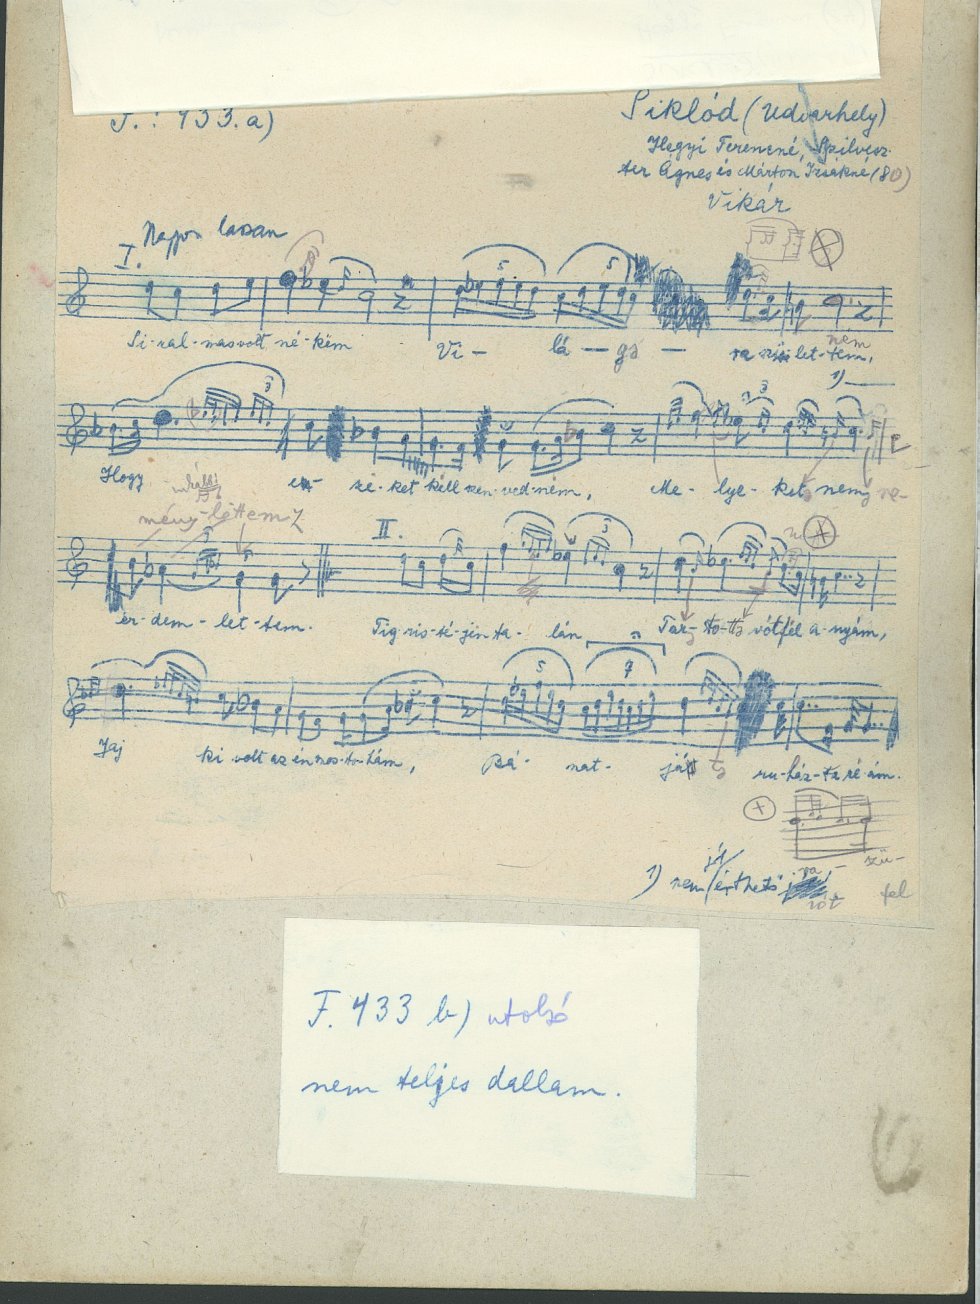 F.: 433.a)
Siklód (Udvarhely)
Hegyi Ferencné, Szilvesz-
ter Ágnes és Márton Izsákné (80)
Vikár
Nagyon lassan
I.
5
5
Si-ral-mas volt né-kem Vi- lá-gs- ra szü let-tem,
nem
1)
3
3
Hogy eze-ket kell szen-ved-nem, Me-lye-ket nem
mény-lettem
II.
3
ér-dem-let-tem. Tig-ris-té-jin ta-lán Tar-to-tt vót fél a-nyám,
5
9
Jaj ki volt az én mos-to-hám, Bá-nat-ját ru-ház-ta ré-ám.
1) nem jól érthető
szü-
fel
F. 433 b) utolsó
nem teljes dallam.